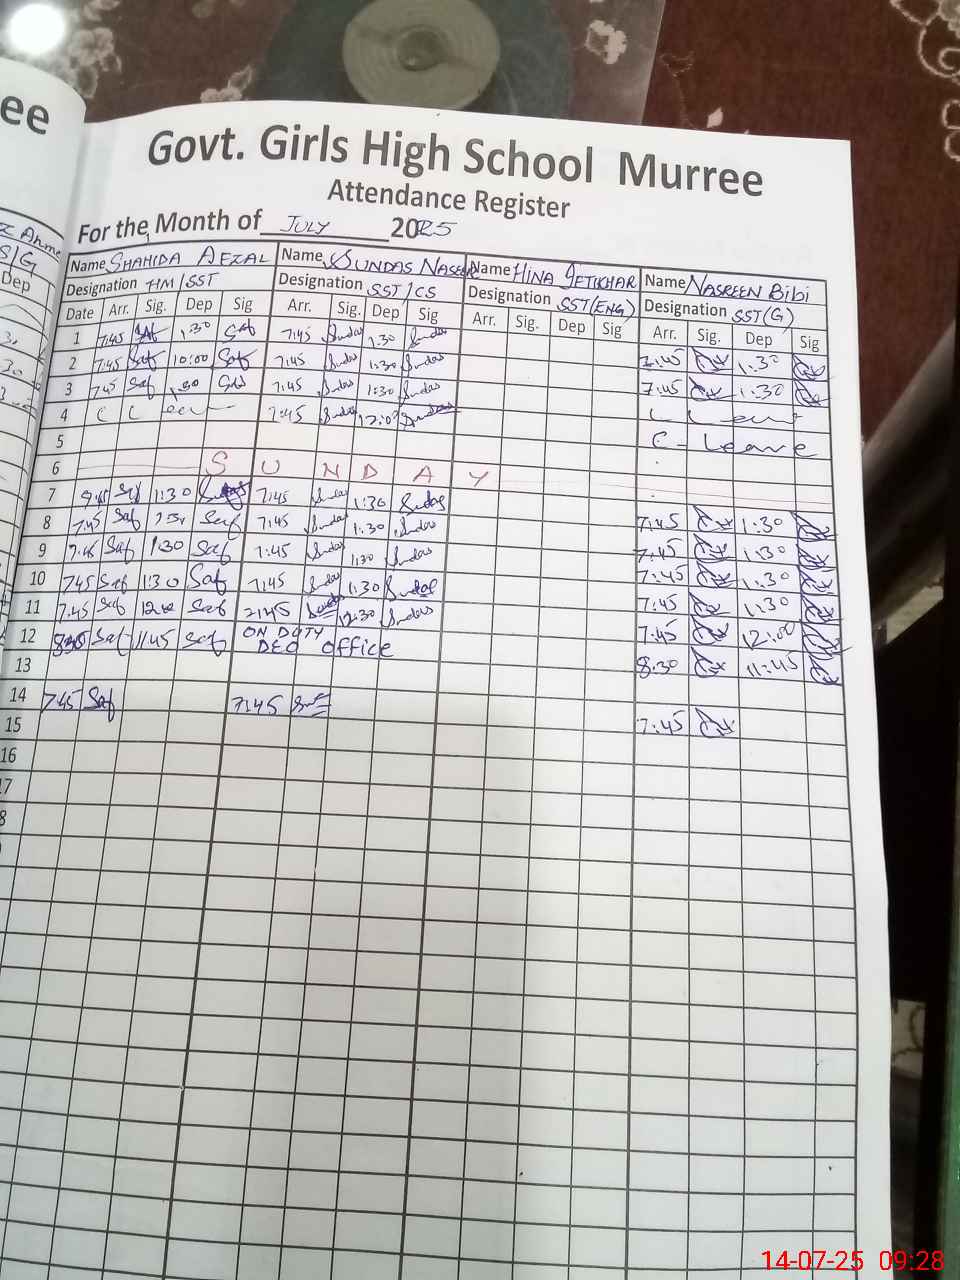 ee
Govt. Girls High School Murree
Attendance Register
For the Month of JULY 2025
Name SHAHIDA AFZAL Name SUNDAS NASEER Name HINA IFTIKHAR Name NASREEN BiBi
Designation HM/SST Designation SST/CS Designation SST(ENG) Designation SST(G)
Date Arr. Sig. Dep Sig Arr. Sig. Dep Sig Arr. Sig. Dep Sig Arr. Sig. Dep Sig
S/G
Dep
1 7:45 Saf 1:30 Saf 7:45 Sundas 1:30 Sundas
2 7:45 Saf 10:00 Saf 7:45 Sundas 1:30 Sundas 7:45 1:30
3 7:45 Saf 1:30 Saf 7:45 Sundas 1:30 Sundas 7:45 1:30
4 C Leave 7:45 Sundas 12:00 Sundas
5 C - Leave
6 S U N D A Y
7 Saf 1:30 7:45 Sundas 1:30 Sundas
8 7:45 Saf Saf 7:45 Sundas 1:30 Sundas 7:45 1:30
9 7:45 Saf 1:30 Saf 7:45 Sundas 1:30 Sundas 7:45 1:30
10 7:45 Saf 1:30 Saf 7:45 Sundas 1:30 Sundas 7:45 1:30
11 7:45 Saf Saf Sundas 12:30 Sundas 7:45 1:30
12 8:30 Saf 11:45 Saf ON DUTY 7:45 12:00
DEO Office
13 8:30 11:45
14 7:45 Saf 7:45
15 7:45
16
17
8
14-07-25 09:28